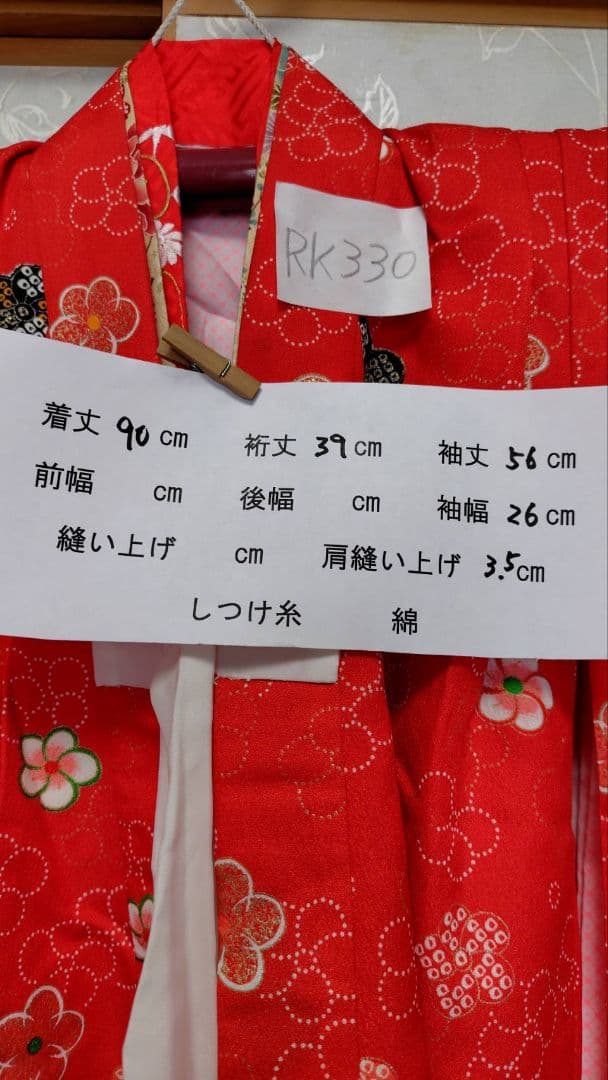 RK330
着丈 90 cm 裄丈 39 cm 袖丈 56 cm
前幅 cm 後幅 cm 袖幅 26 cm
縫い上げ cm 肩縫い上げ 3.5 cm
しつけ糸 綿